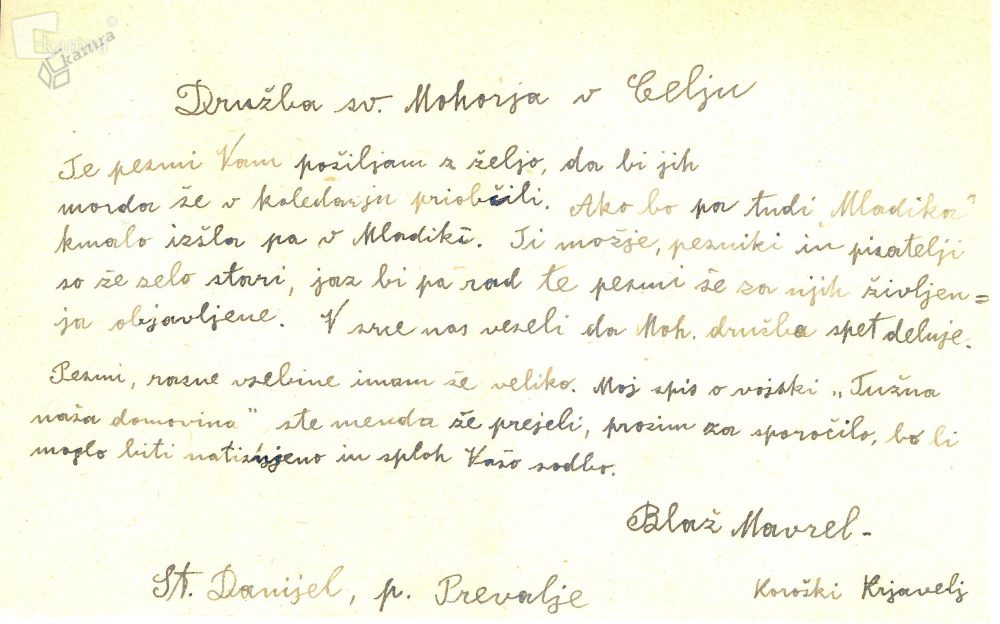 kamra
Družba sv. Mohorja v Celju
Te pesmi Vam pošiljam z željo, da bi jih
morda še v koledarju priobčili. Ako bo pa tudi „Mladika"
kmalo izšla pa v Mladiki. Ti možje, pesniki in pisatelji
so že zelo stari, jaz bi pa rad te pesmi še za njih življen=
ja objavljene. V srce nas veseli da Moh. družba spet deluje.
Pesmi, razne vsebine imam še veliko. Moj spis o vojski „Tužna
naša domovina" ste menda že prejeli, prosim za sporočilo, bo li
moglo biti natisnjeno in sploh Vašo sodbo.
Blaž Mavrel-
St. Danijel, p. Prevalje
Koroški Krjavelj